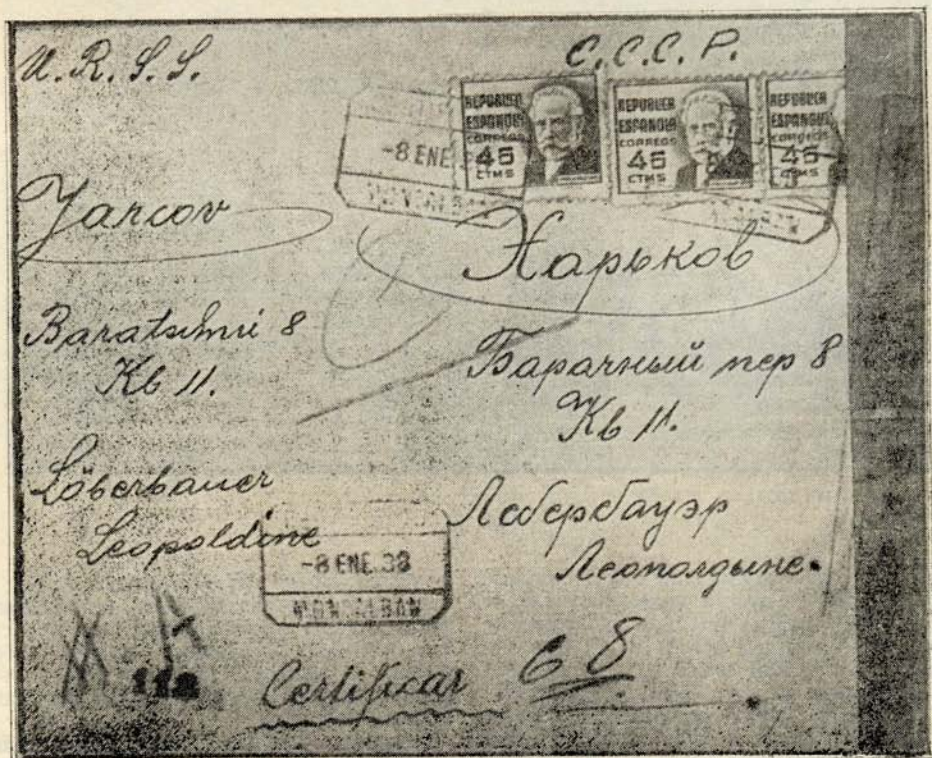 U. R. S. S.
С. С. С. Р.
REPUBLICA ESPAÑOLA
CORREOS
45
CTMS
REPUBLICA ESPAÑOLA
CORREOS
45
CTMS
REPUBLICA ESPAÑOLA
CORREOS
45
CTMS
-8 ENE
Jarcov
Харьков
Baratschni 8
Kb 11.
Барачный пер 8
Кв 11.
Löberbauer
Leopoldine
Лебербауэр
Леополдыне.
-8 ENE. 38
MONTALBAN
112
Certificar 68